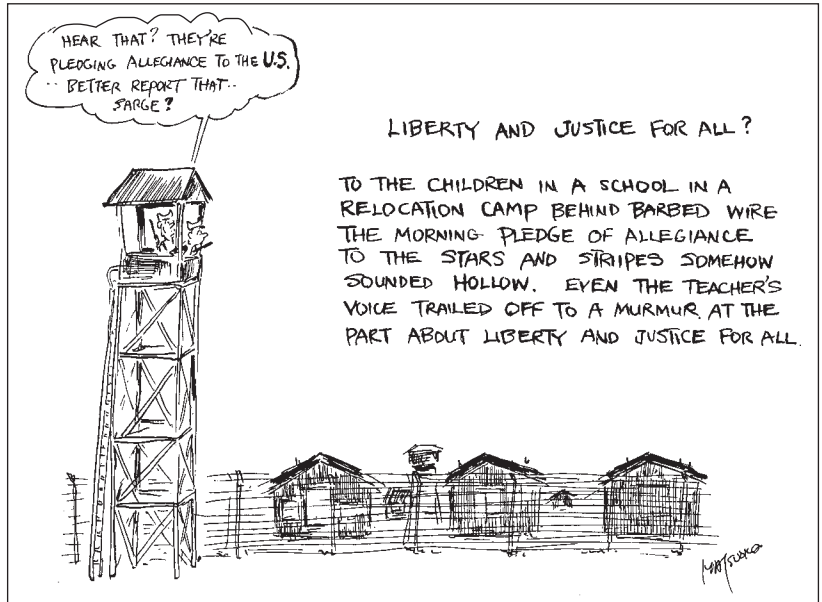 HEAR THAT? THEY'RE
PLEDGING ALLEGIANCE TO THE U.S.
.. BETTER REPORT THAT..
SARGE?
LIBERTY AND JUSTICE FOR ALL?
TO THE CHILDREN IN A SCHOOL IN A
RELOCATION CAMP BEHIND BARBED WIRE
THE MORNING PLEDGE OF ALLEGIANCE
TO THE STARS AND STRIIPES SOMEHOW
SOUNDED HOLLOW. EVEN THE TEACHER'S
VOICE TRAILED OFF TO A MURMUR AT THE
PART ABOUT LIBERTY AND JUSTICE FOR ALL.